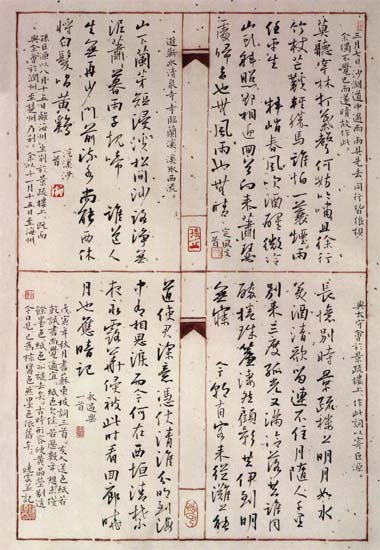 三月七日沙湖道中遇雨雨具先去同行皆狼狽
余獨不覺已而遂晴故作此
莫聽穿林打葉聲何妨吟嘯且徐行
竹杖芒鞋輕勝馬誰怕一蓑煙雨
任平生 料峭春風吹酒醒微冷
山頭斜照却相迎回首向來蕭瑟
處歸去也無風雨也無晴 定風波
一首
遊蘄水清泉寺寺臨蘭溪溪水西流
山下蘭芽短浸溪松間沙路淨無
泥蕭蕭暮雨子規啼 誰道人
生無再少門前流水尚能西休
將白髮唱黃雞 浣溪沙
一首
孫巨源以八月十五日離海州坐別於景疏樓上既而
與余會於潤州至楚州乃別余以十一月十五日至海州
與太守會於景疏樓上作此詞以寄巨源
長憶別時景疏樓上明月如水
美酒清歌留連不住月隨人千里
別來三度孤光又滿冷落共誰同
醉捲珠簾淒然顧影共伊到明
無寐 今朝有客來從濉上能
道使君深意憑仗清淮分明到海
中有相思淚而今何在西垣清禁
夜永露華侵被此時看回廊曉
月也應暗記 永遇樂
一首
戊寅年秋月書蘇東坡詞三首友人送色紙若